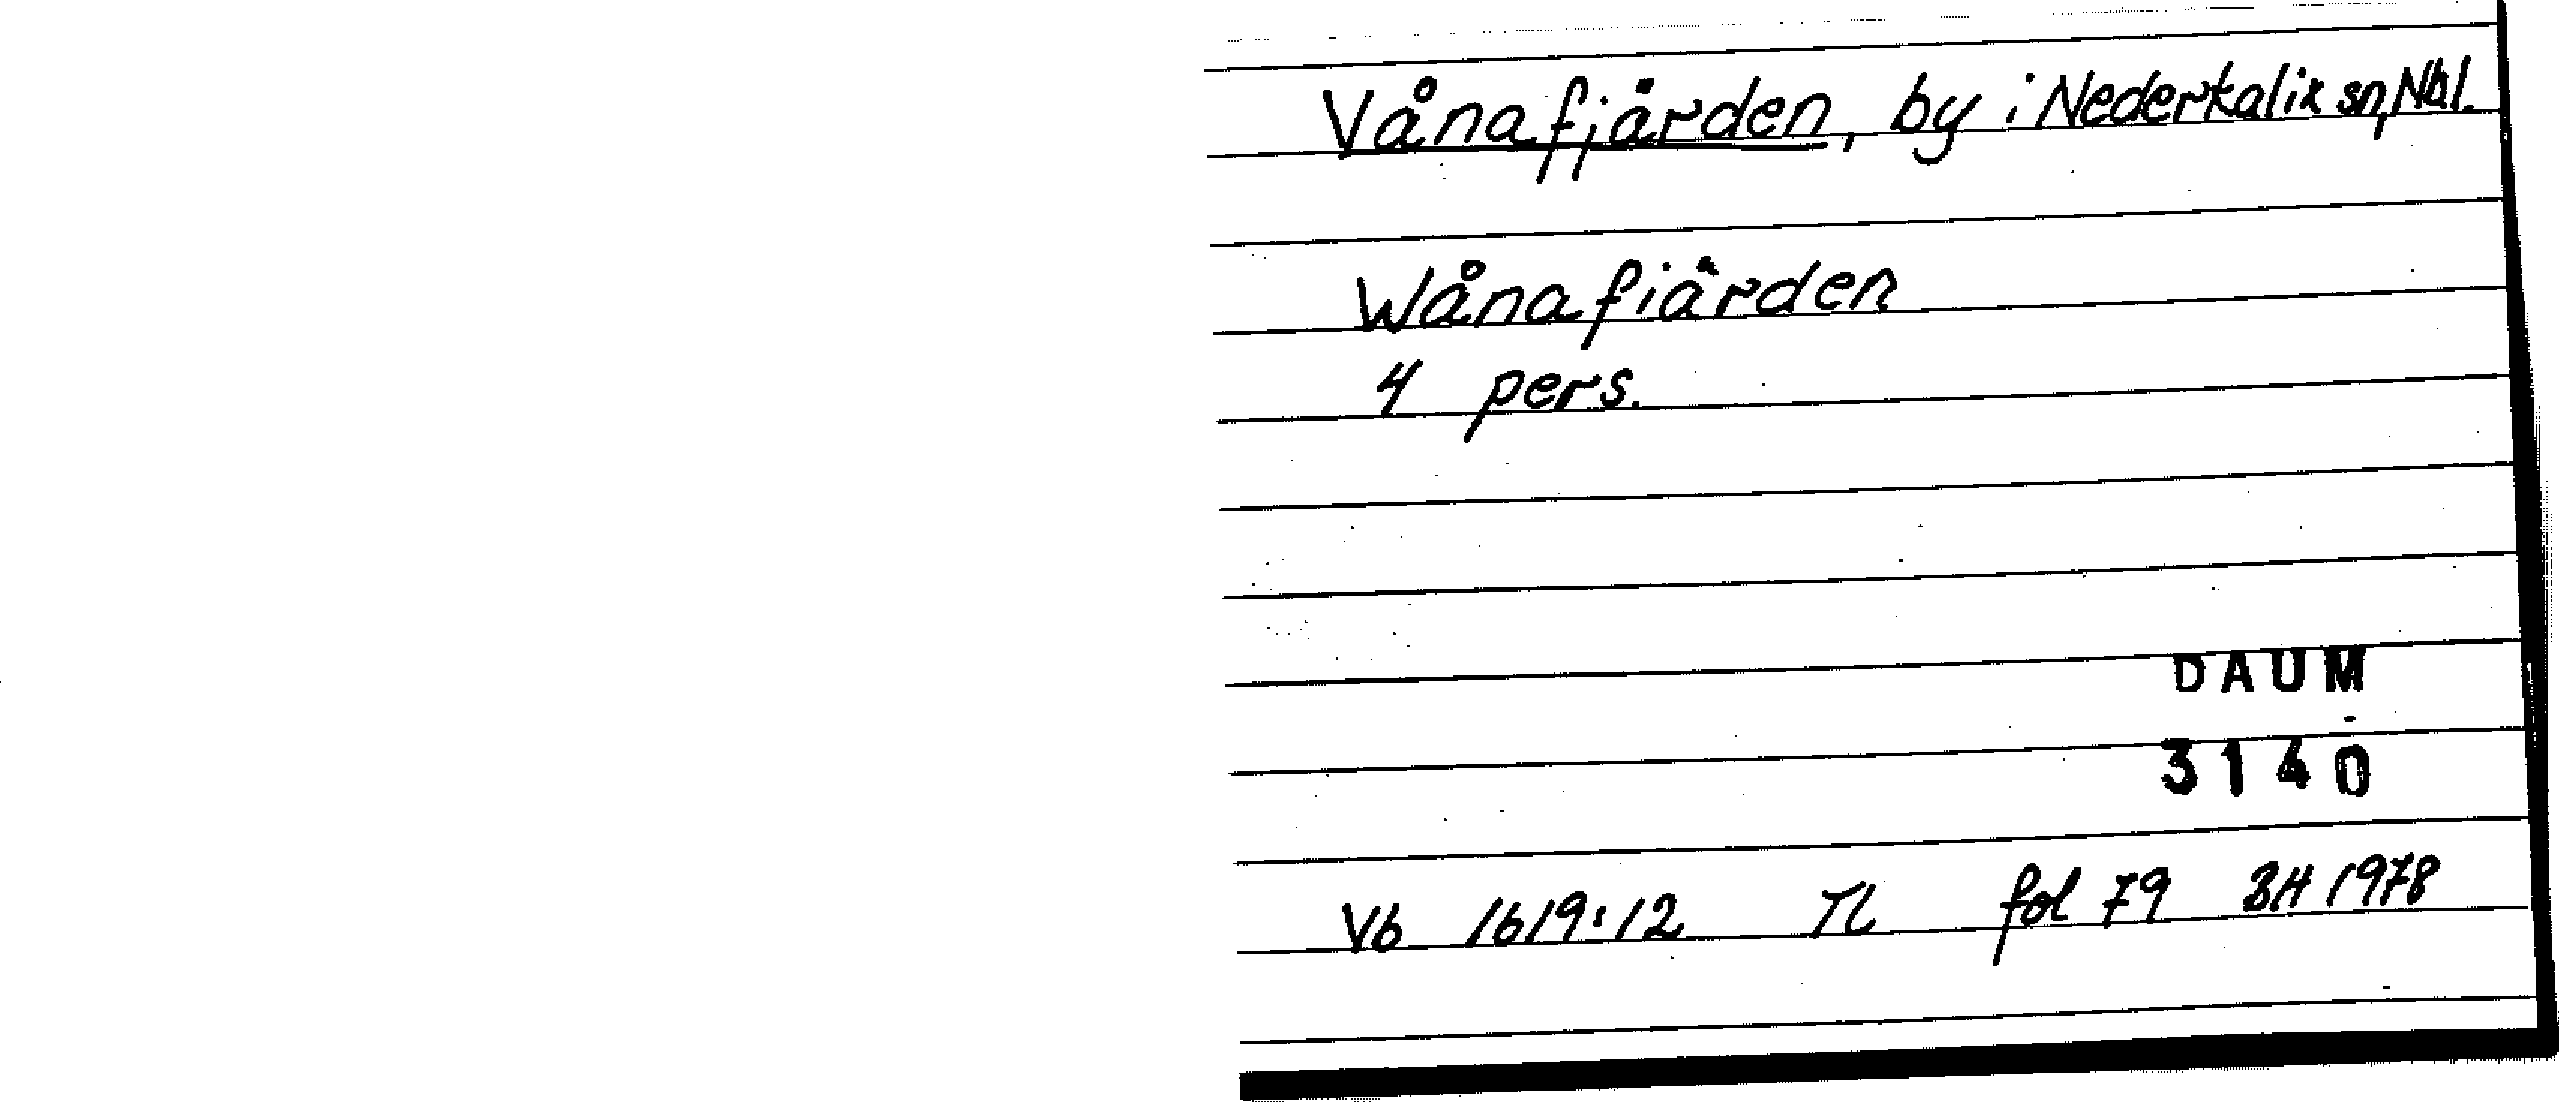 Vånafjärden, by i Nederkalix sn, Nbl.
Wånafiärden
4 pers.
DAUM
3140
Vb 1619:12 TL fol 79 BH 1978